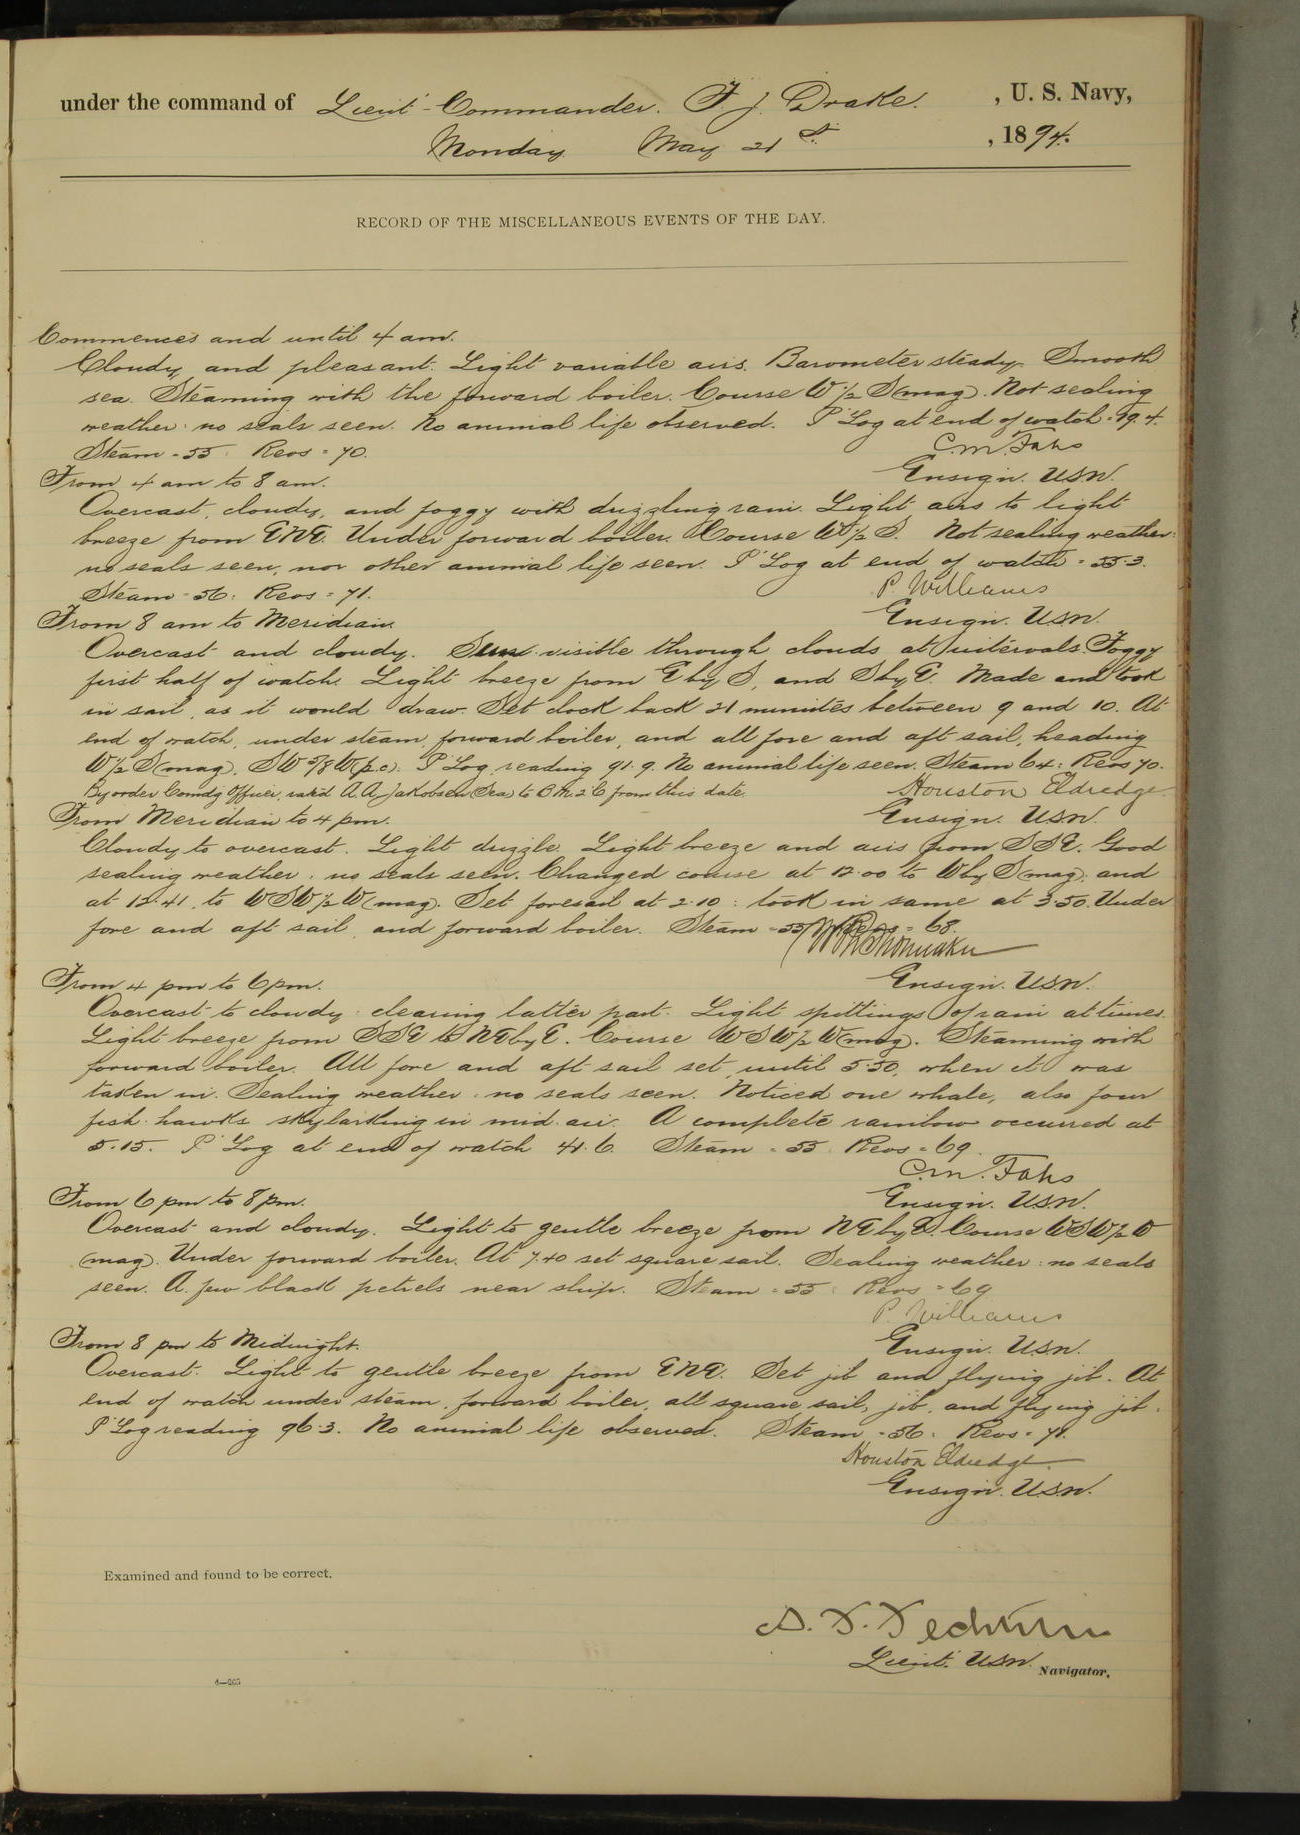 under the command of Lieut-Commander. F. J. Drake. , U. S. Navy,
Monday May 21st. , 1894.
RECORD OF THE MISCELLANEOUS EVENTS OF THE DAY.
Commences and until 4 am.
Cloudy and pleasant. Light variable airs. Barometer steady. Smooth
sea. Steaming with the forward boiler. Course W 1/2 S (mag). Not sealing
weather: no seals seen. No animal life observed. P. Log at end of watch = 19.4.
Steam = 55: Revs = 70.
C.M. Fahs
Ensign. USN.
From 4 am to 8 am.
Overcast, cloudy, and foggy with drizzling rain. Light airs to light
breeze from ENE. Under forward boiler. Course W 1/2 S. Not sealing weather:
no seals seen, nor other animal life seen. P. Log at end of watch = 55.3.
Steam = 56: Revs = 71.
P. Williams
Ensign. USN.
From 8 am to Meridian.
Overcast and cloudy. Sun visible through clouds at intervals. Foggy
first half of watch. Light breeze from E by S, and S by E. Made and took
in sail, as it would draw. Set clock back 21 minutes between 9 and 10. At
end of watch, under steam, forward boiler, and all fore and aft sail, heading
W 1/2 S (mag), SW 5/8 W (p.c). P. Log reading 91.9. No animal life seen. Steam 64: Revs 70.
By order Comdg Officer, rated A. A. Jakobsen (Sea) to B.M. 2C from this date.
Houston Eldredge
Ensign. USN.
From Meridian to 4 pm.
Cloudy to overcast. Light drizzle. Light breeze and airs from SSE. Good
sealing weather: no seals seen. Changed course at 12.00 to W by S (mag), and
at 12.41, to WSW 1/2 W (mag). Set foresail at 2.10: took in same at 3.50. Under
fore and aft sail, and forward boiler. Steam = 55: Revs = 68.
Ensign. USN.
From 4 pm to 6 pm.
Overcast to cloudy: clearing latter part. Light spittings of rain at times.
Light breeze from SSE to NE by E. Course WSW 1/2 W (mag). Steaming with
forward boiler. All fore and aft sail set, until 5.30, when it was
taken in. Sealing weather: no seals seen. Noticed one whale, also four
fish hawks skylarking in mid air. A complete rainbow occurred at
5.15. P. Log at end of watch 41.6. Steam = 55: Revs = 69.
C.M. Fahs
Ensign. USN.
From 6 pm to 8 pm.
Overcast and cloudy. Light to gentle breeze from NE by E. Course WSW 1/2 W
(mag). Under forward boiler. At 7.40 set square sail. Sealing weather: no seals
seen. A few black petrels near ship. Steam = 55: Revs = 69
P. Williams
Ensign. USN.
From 8 pm to Midnight.
Overcast. Light to gentle breeze from ENE. Set jib and flying jib. At
end of watch under steam, forward boiler, all square sail, jib, and flying jib.
P. Log reading 96.3. No animal life observed. Steam = 56: Revs = 71.
Houston Eldredge
Ensign. USN.
Examined and found to be correct.
Lieut. USN. Navigator.